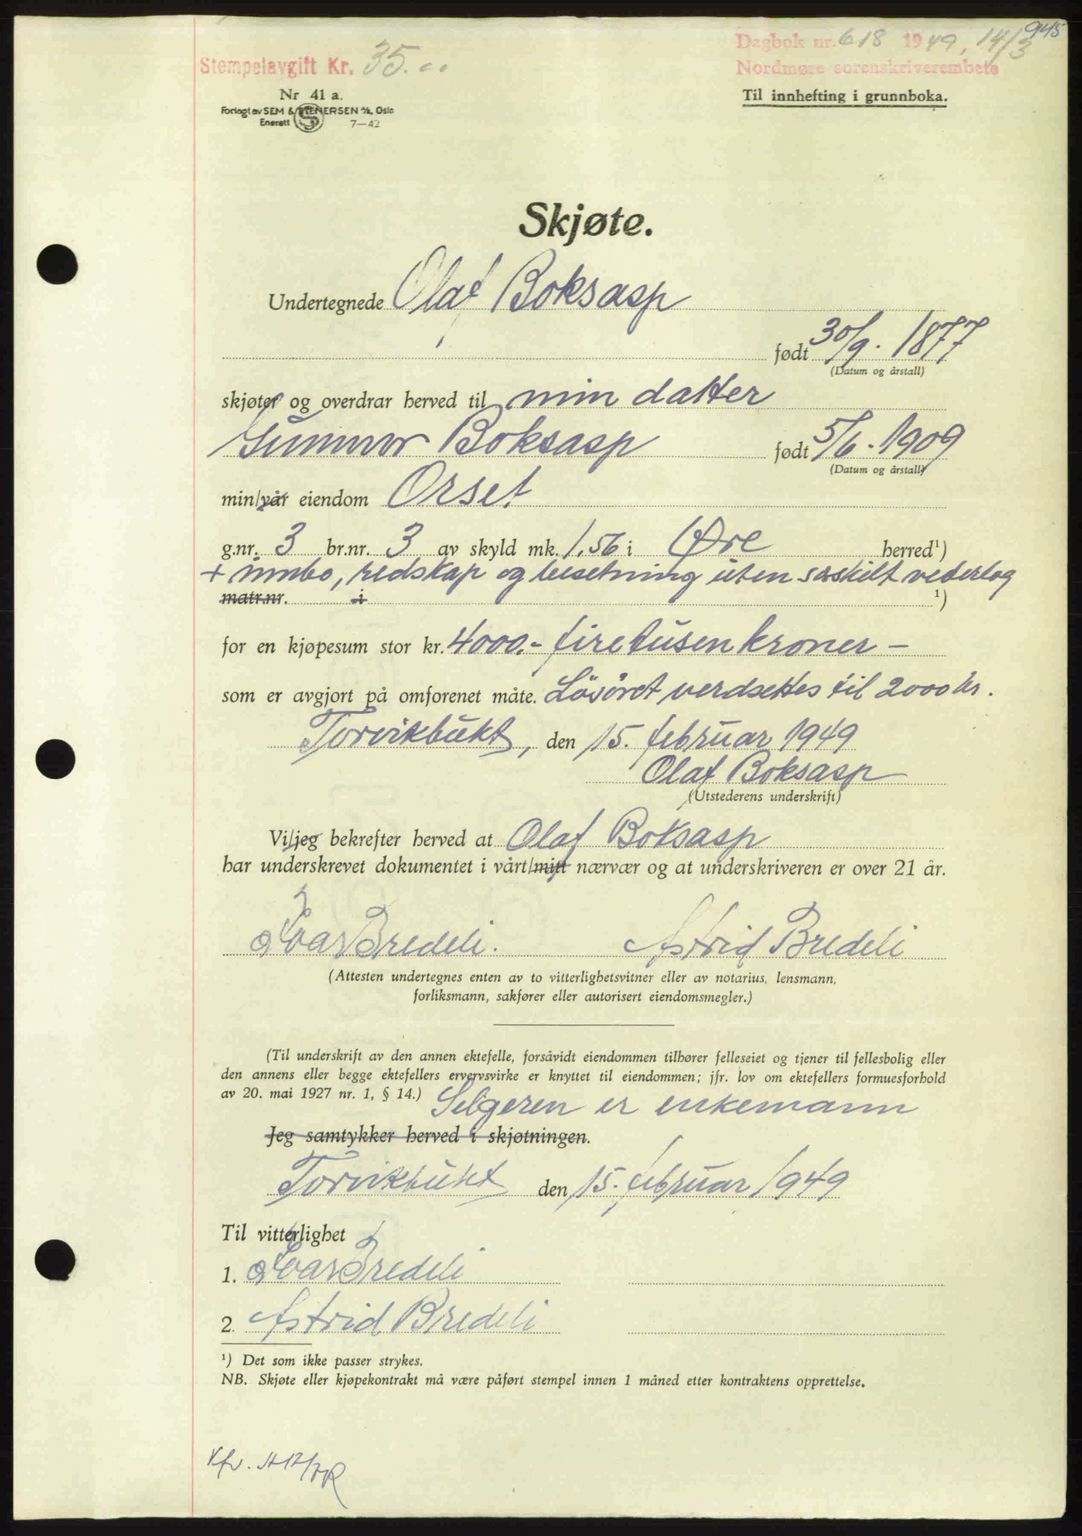 945
Dagbok nr. 618 1949, 14/3
Nordmøre sorenskriverembete
Stempelavgift Kr. 35.00
Nr 41 a.
Til innhefting i grunnboka.
Forlagt av SEM & STENERSEN A/S, Oslo
Enerett 7—42
Skjøte.
Undertegnede Olaf Boksasp
født 30/9. 1877
(Datum og årstall)
skjøter og overdrar herved til min datter
Gunnvor Boksasp født 5/6. 1909
(Datum og årstall)
min/vår eiendom Orset
g.nr. 3 br.nr. 3 av skyld mk. 1,56 i Øre herred¹)
+ innbo, redskap og besetning uten særskilt vederlag
matr.nr. i ¹)
for en kjøpesum stor kr. 4000.- firetusenkroner -
som er avgjort på omforenet måte. Lösöret verdsettes til 2000 kr.
Torvikbukt, den 15. februar 1949
Olaf Boksasp
(Utstederens underskrift)
Vi/jeg bekrefter herved at Olaf Boksasp
har underskrevet dokumentet i vårt/mitt nærvær og at underskriveren er over 21 år.
Ivar Bredeli. Astrid Bredeli
(Attesten undertegnes enten av to vitterlighetsvitner eller av notarius, lensmann,
forliksmann, sakfører eller autorisert eiendomsmegler.)
(Til underskrift av den annen ektefelle, forsåvidt eiendommen tilhører felleseiet og tjener til fellesbolig eller
den annens eller begge ektefellers ervervsvirke er knyttet til eiendommen; jfr. lov om ektefellers formuesforhold
av 20. mai 1927 nr. 1, § 14.) Selgeren er enkemann
Jeg samtykker herved i skjøtningen.
Torvikbukt den 15. februar 1949
Til vitterlighet
1. Ivar Bredeli
2. Astrid Bredeli
¹) Det som ikke passer strykes.
NB. Skjøte eller kjøpekontrakt må være påført stempel innen 1 måned etter kontraktens opprettelse.